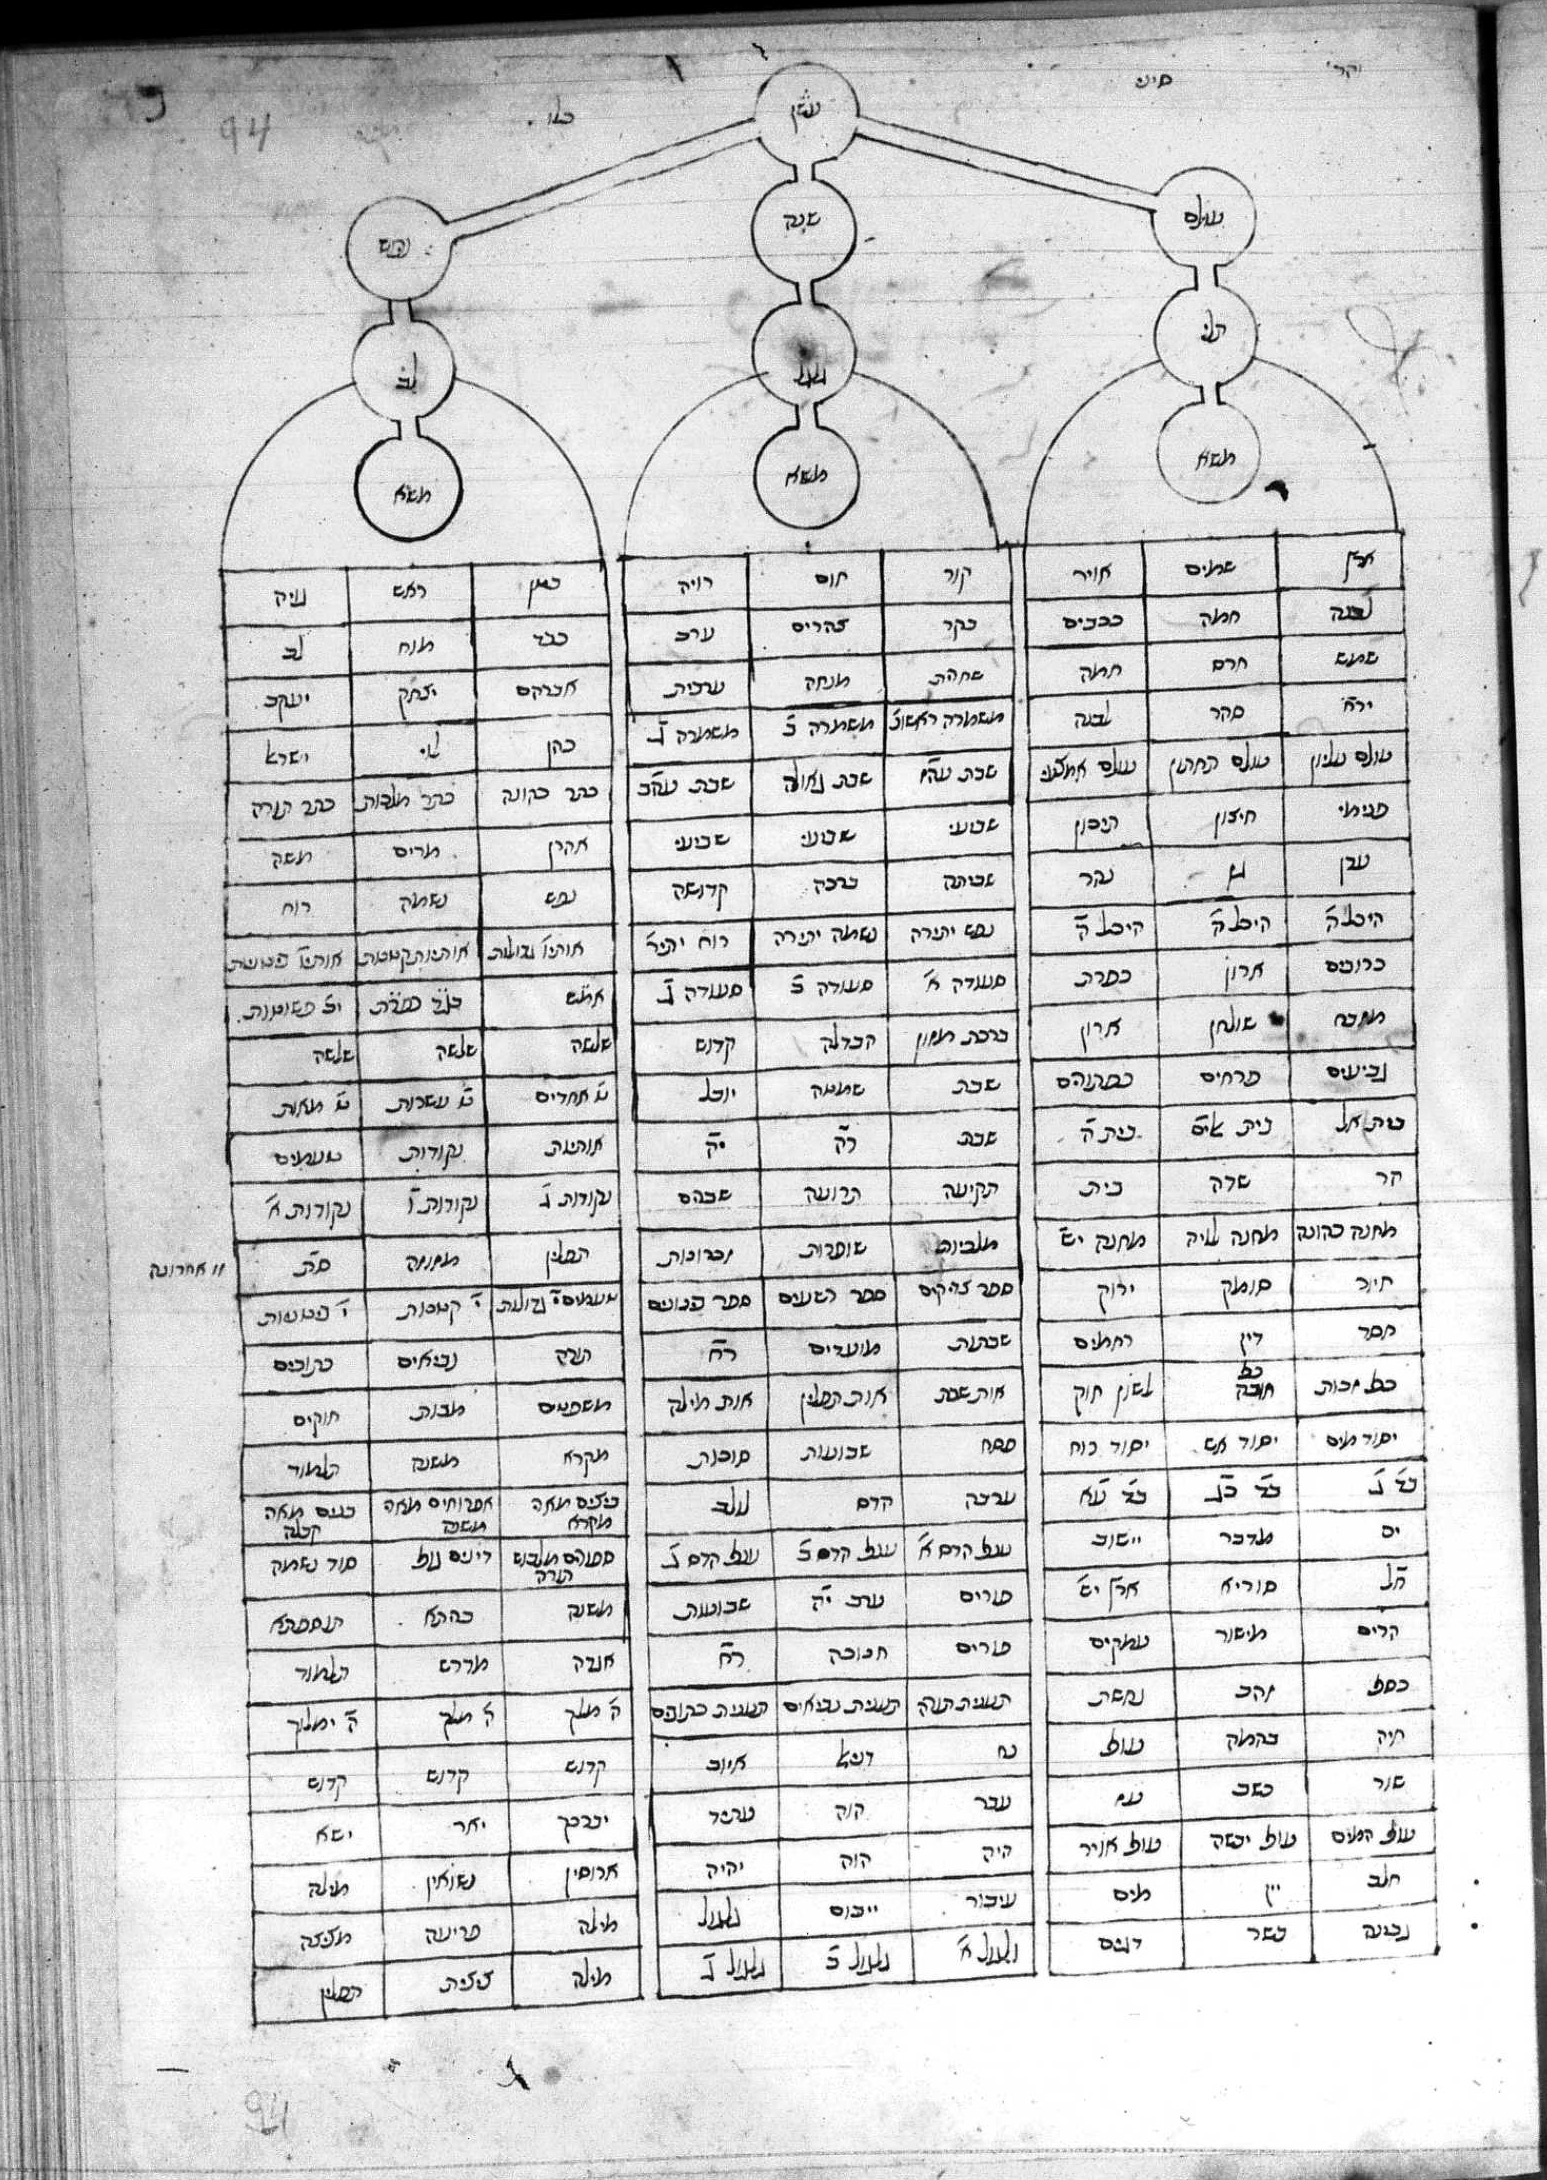 סיני
עשן
עולם
שנה
נפש
תלי
גלגל
לב
משא
משא
משא
ארץ שמים אויר
לבנה חמה ככבים
שמש חרס חמה
ירח סהר לבנה
עולם עליון עולם תחתון עולם אמצעי
פנימי חיצון תיכון
עדן גן נהר
היכל ה היכל ה היכל ה
כרובים ארון כפרת
מזבח שולחן ארון
גביעים פרחים כפתורים
בית אל בית בית ה
הר שדה בית
מחנה כהונה מחנה לויה מחנה יש
חיור סומק ירוק
חסד דין רחמים
כף זכות כף חובה לשון חוק
יסוד מים יסוד אש יסוד רוח
ים מדבר יישוב
חל סוריא ארץ יש
הרים מישור עמקים
כסף זהב נחשת
חיה בהמה עוף
שור כשב עז
עוף המים עוף יבשה עוף אויר
חלב יין מים
גבינה בשר דגים
קור חום רויה
בקר צהרים ערב
שחרת מנחה ערבית
משמרה ראשונ משמרה ב משמרה ג
שבת שבת גאולה שבת
שבועי שבועי שביעי
שביתה ברכה קדושה
נפש יתירה נשמה יתירה רוח יתיר
סעודה א סעודה ב סעודה ג
ברכת מזון הבדלה קדוש
שבת שמטה יובל
שבת רה יה
תקיעה תרועה שברים
מלכיות שופרות זכרונות
ספר צדיקים ספר רשעים ספר בנונים
שבתות מועדים רח
אות שבת אות תפלין אות מילה
פסח שבועות סוכות
ערבה הדס לולב
ענף הדס א ענף הדס ב ענף הדס ג
פורים ערב יה שבועות
פורים חנוכה רח
תענית תורה תענית נביאים תענית כתובים
נח דניאל איוב
עבר הוה עתיד
היה הוה יהיה
עיבור ייבום גלגול
גלגול א גלגול ב גלגול ג
בטן ראש גויה
כבד מוח לב
אברהם יצחק יעקב
כהן לוי ישרא
כתר כהונה כתר מלכות כתר תורה
אהרן מרים משה
נפש נשמה רוח
אותיו גדולות אותיות קטנות אותיו בינוניות
אמש בגד כפרת יב פשוטות
שלשה שלשה שלשה
ט אחדים ט עשרות ט מאות
אותיות נקודות טעמים
נקודות ג נקודות ו נקודות א
תפלין מזוזה סת
וו אחרונה
טעמים י גדולות י קטנות י בינוניות
תורה נביאים כתובים
משפטים מצות חוקים
מקרא משנה תלמוד
ביצים מאה מקרא אפרוחים מאה משנה בנים מאה קבלה
ספורים מלבוש תורה דינים גוף סוד נשמה
משנה ברתא תוספתא
אגדה מדרש תלמוד
ה מלך ה מלך ה ימלוך
קדוש קדוש קדוש
יברכך יאר ישא
ארוסין נשואין מילה
מילה פריעה מציצה
מילה ציצית תפלין
94